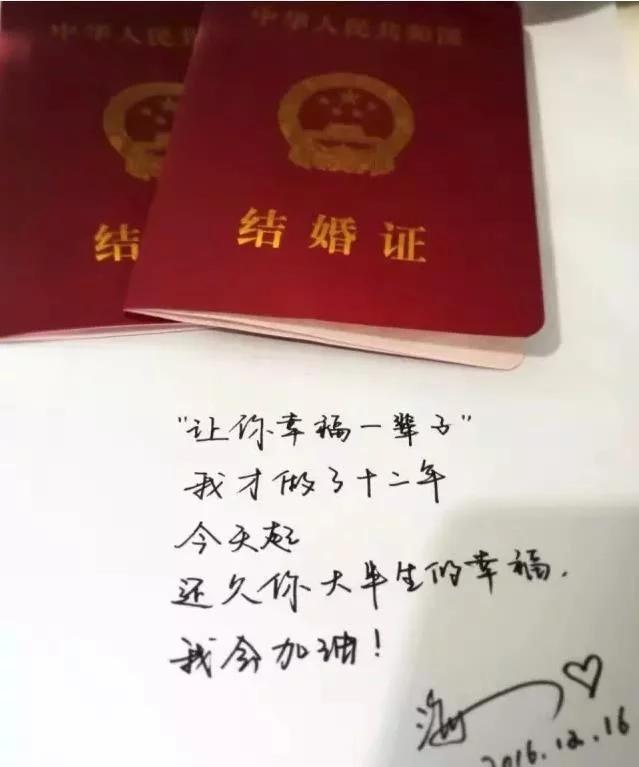 中华人民共和国
结婚证
中华人民共
结
"让你幸福一辈子"
我才做了十二年
今天起
还久你大半生的幸福.
我会加油!
2016.12.16